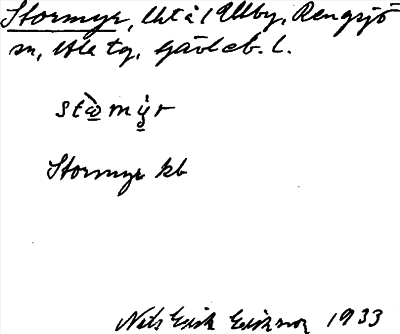 Stormyr, Utål Ullby, Rengsjö
sn, Ala tg, Gävleb. l.
stὼ̲mỳ̲r
Stormyr kb
Nils Erik Eriksson 1933